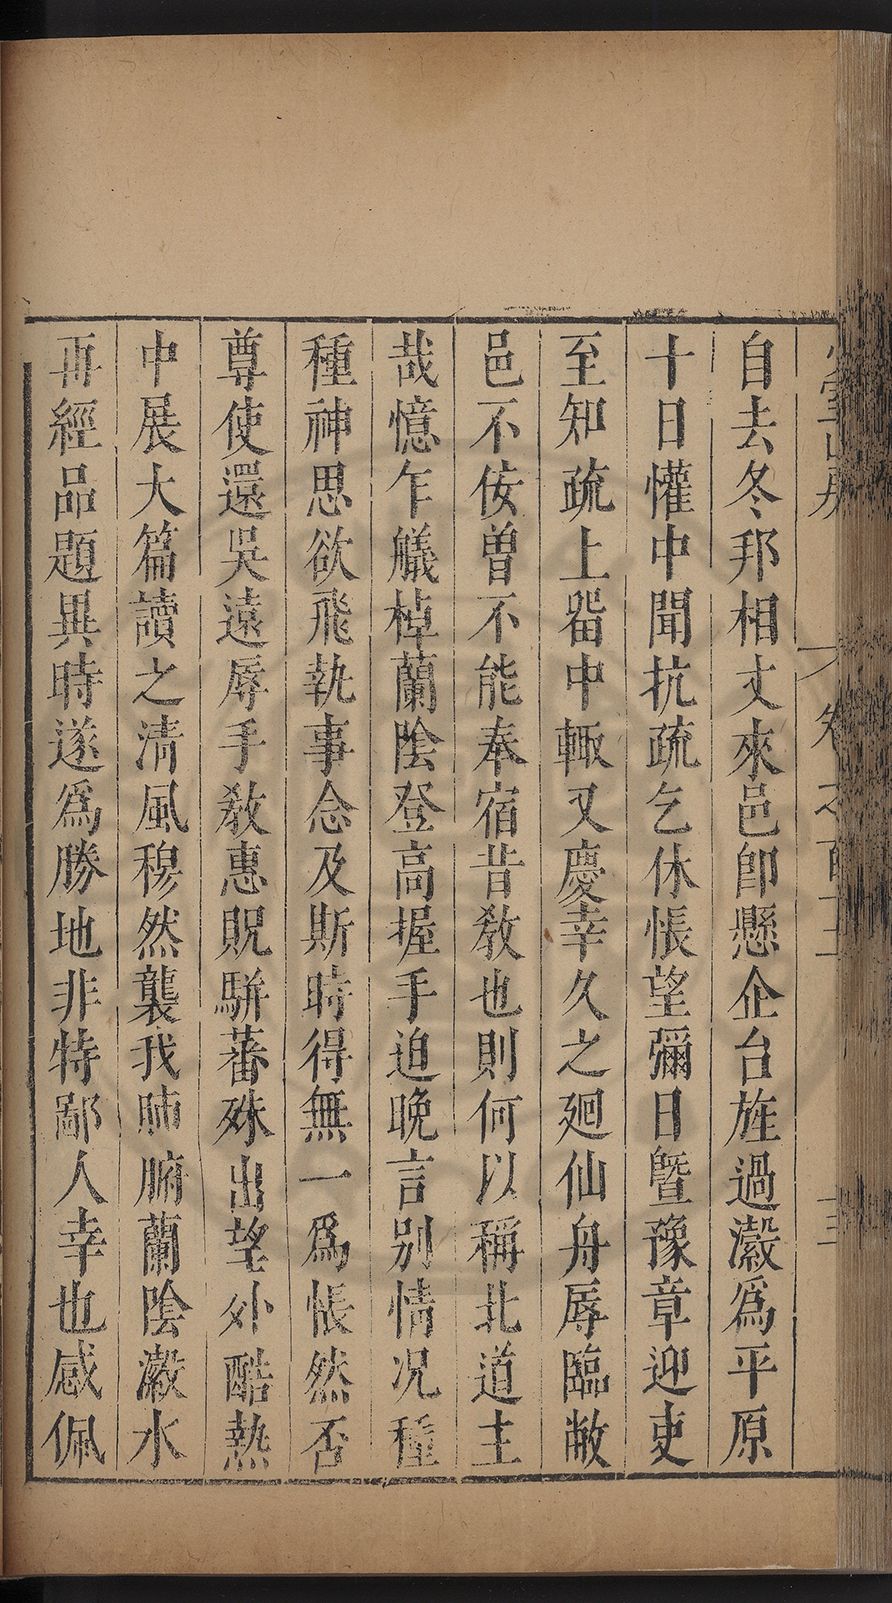 自去冬邦相丈來邑卽懸企台旌過瀫爲平原
十日懽中聞抗疏乞休悵望彌日曁豫章迎吏
至知疏上畱中輙又慶幸久之廻仙舟辱臨敝
邑不佞曾不能奉宿昔教也則何以稱北道主
哉憶乍艤棹蘭陰登高握手迫晚言别情況種
種神思欲飛執事念及斯時得無一爲悵然否
尊使還吳遠辱手敎惠貺駢蕃殊出望外酷熱
中展大篇讀之清風穆然襲我肺腑蘭陰瀫水
再經品題異時遂爲勝地非特鄙人幸也感佩